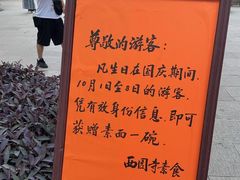 尊敬的游客：
凡生日在国庆期间，
10月1日至8日的游客，
凭有效身份信息，即可
获赠素面一碗。
西园寺素食